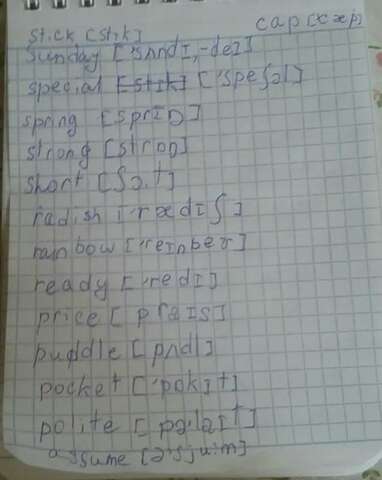 cap [kæp]
stick [stik]
sunday ['sʌndɪ,-deɪ]
special [stik] ['speʃəl]
spring [sprɪŋ]
strong [stroŋ]
short [ʃɔ:t]
radish ['rædɪʃ]
rainbow ['reɪnbəʊ]
ready ['redɪ]
price [praɪs]
puddle [pʌdl]
pocket ['pokɪt]
polite [pə'laɪt]
assume [ə'sju:m]